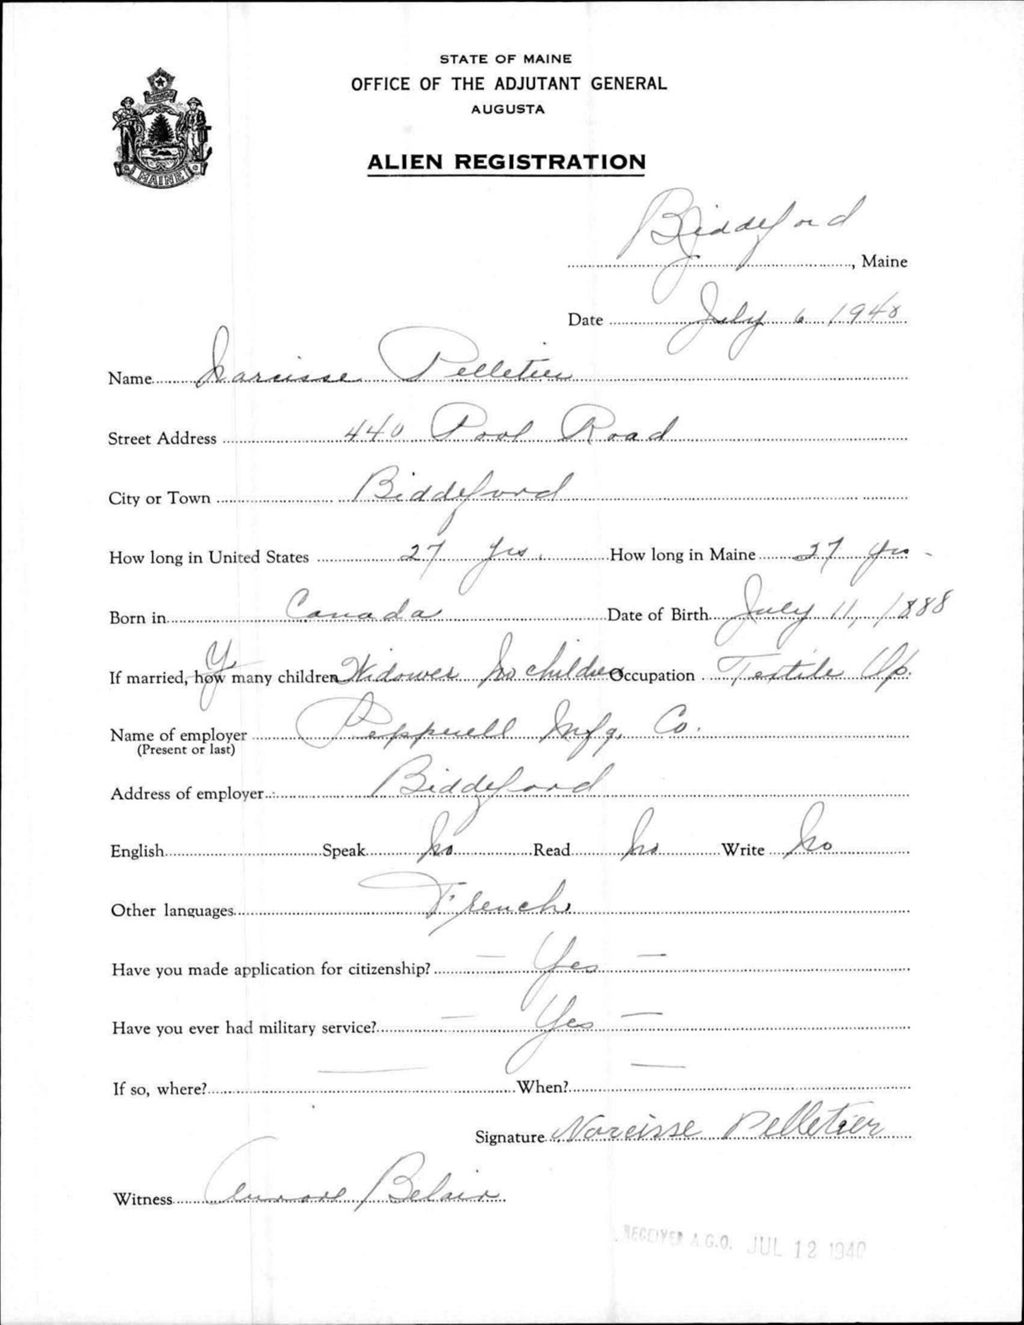 STATE OF MAINE
OFFICE OF THE ADJUTANT GENERAL
AUGUSTA
MAINE
ALIEN REGISTRATION
Biddeford, Maine
Date July 6, 1940
Name Narcisse Pelletier
Street Address 440 Pool Road
City or Town Biddeford
How long in United States 27 yrs. How long in Maine 27 yrs -
Born in Canada Date of Birth July 11, 1888
If married, how many children Widower No children Occupation Textile Op.
Name of employer Pepperell Mfg. Co.
(Present or last)
Address of employer Biddeford
English Speak No Read No Write No
Other languages French
Have you made application for citizenship? — Yes —
Have you ever had military service? — Yes —
If so, where? — When? —
Signature Narcisse Pelletier
Witness Aurore Belair
RECEIVED A.G.O. JUL 12 1940